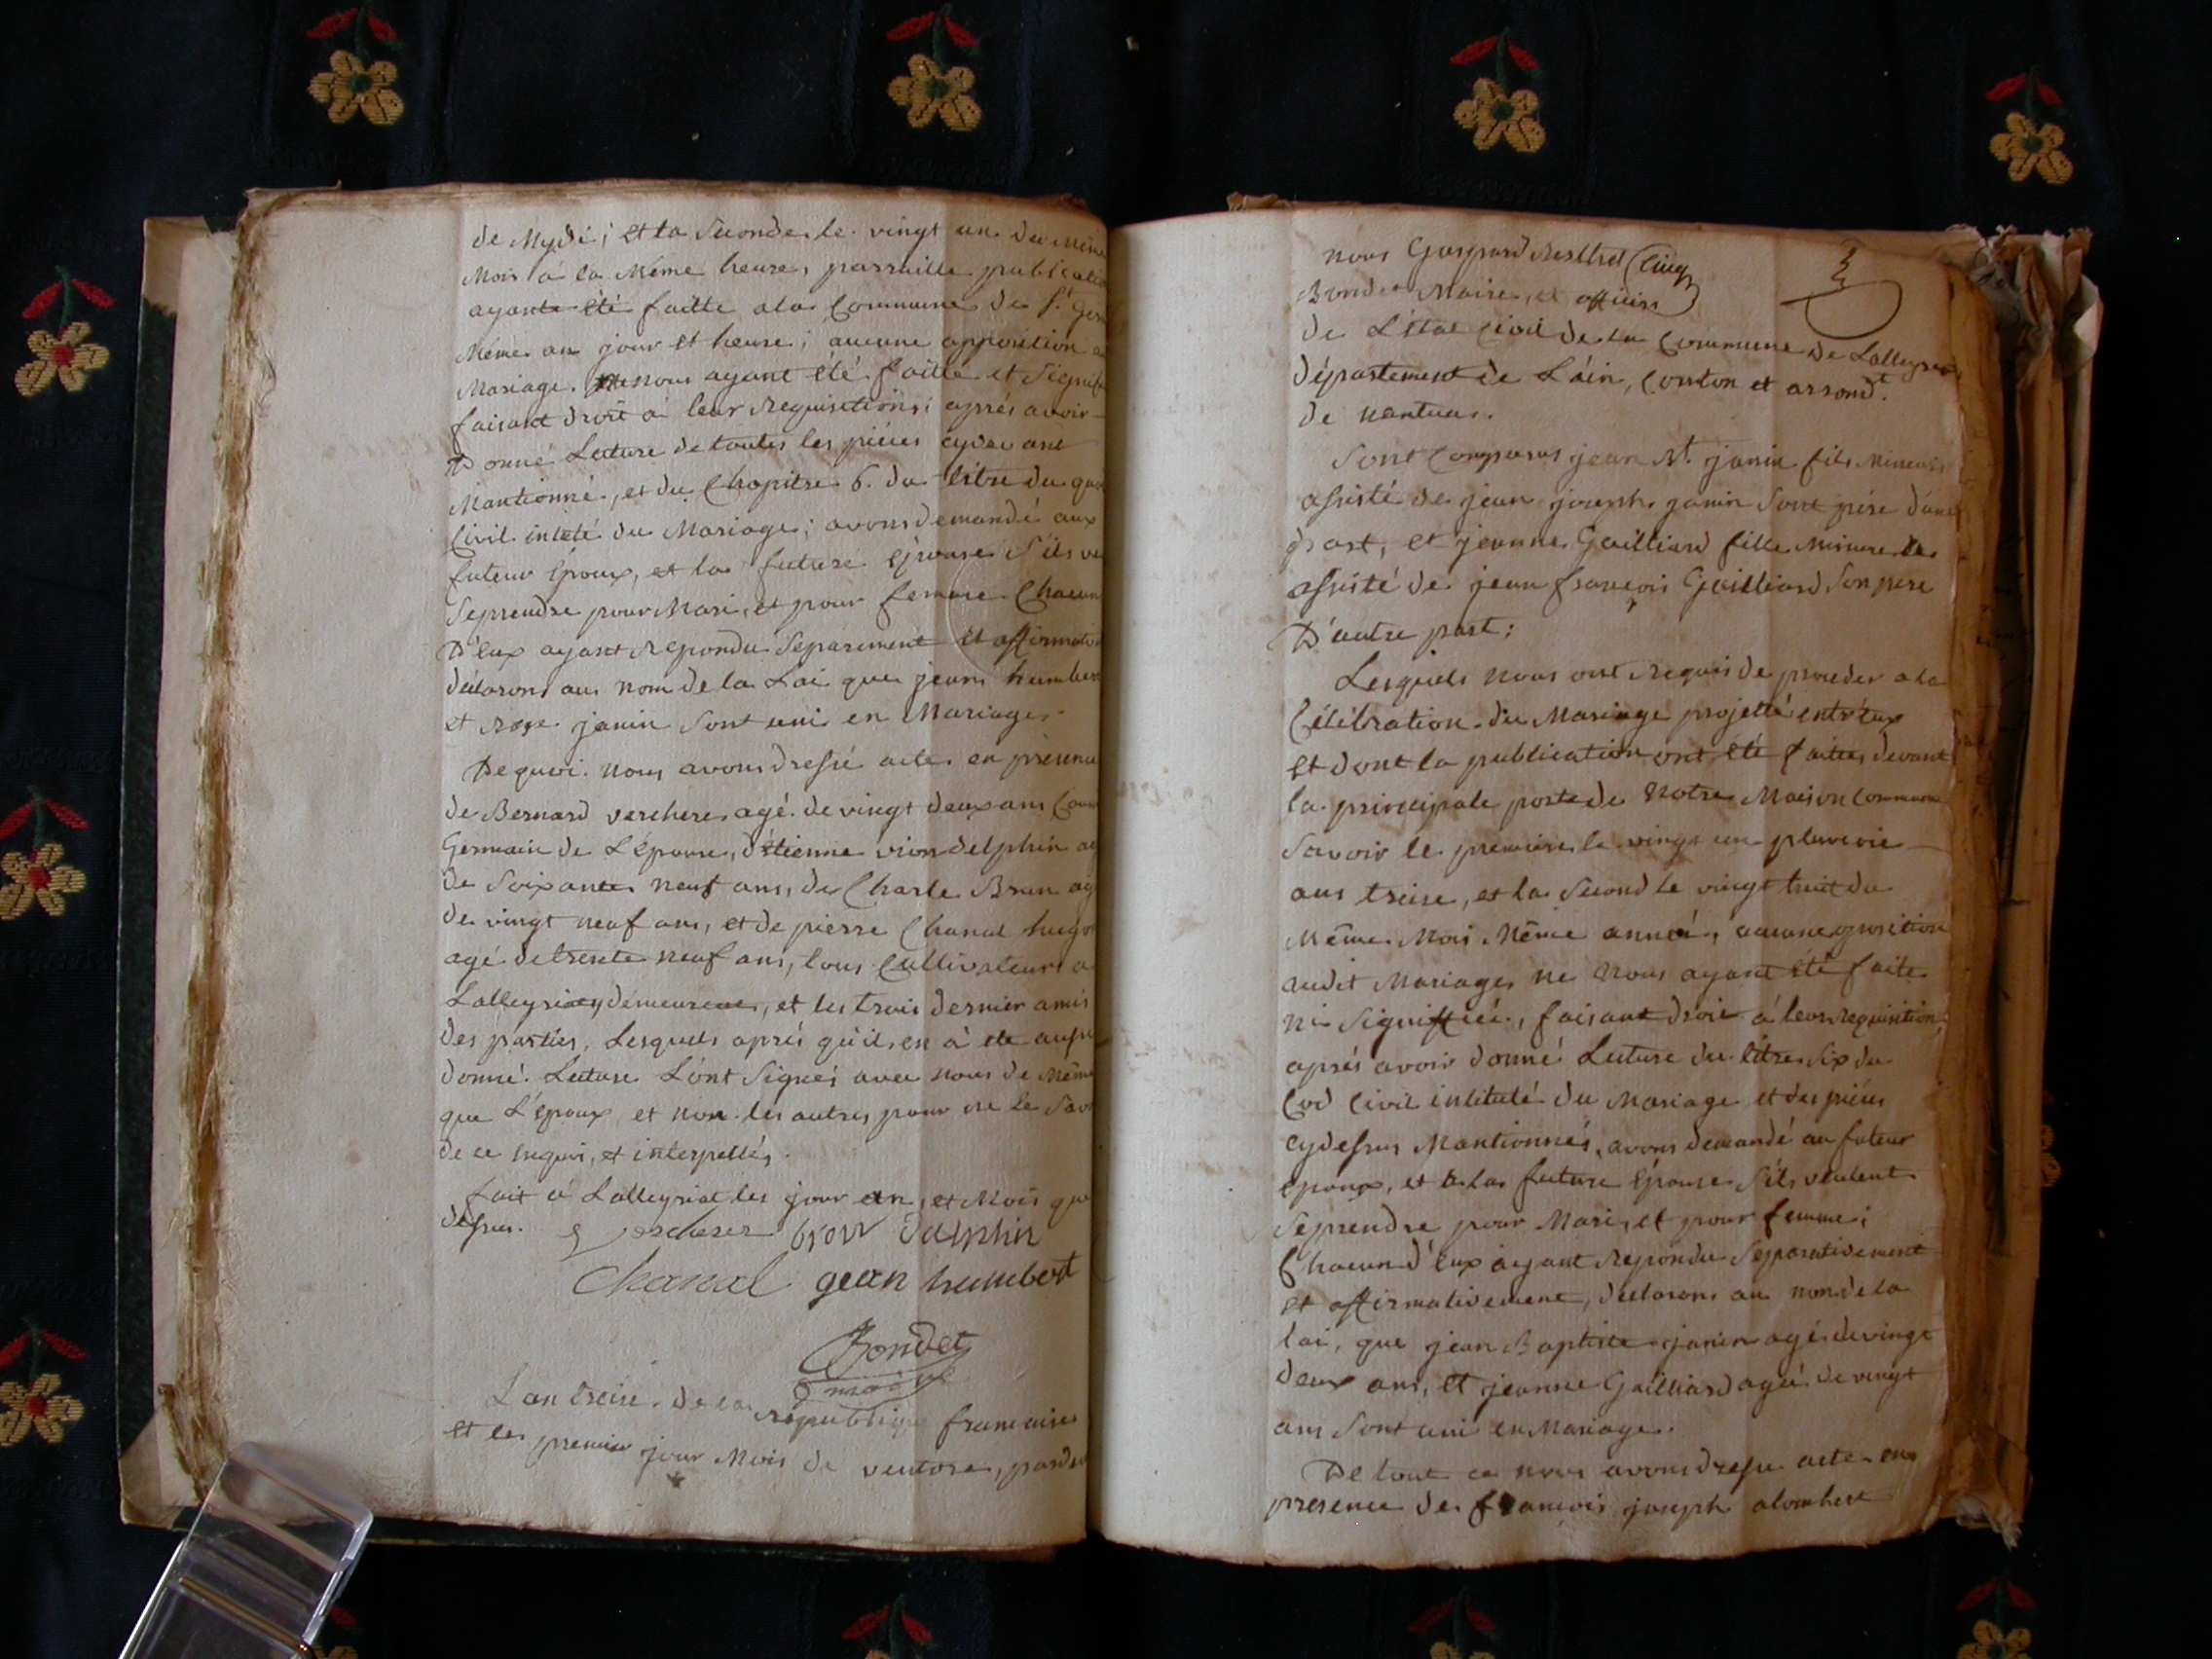 de Mydi; et la seconde le vingt un du même
Mois à la même heure, parraille publicatio
ayante été faitte a la Commune de St. Germ
Même an jour et heure; aucune opposition a
Mariage ne nous ayant été faitte et signifi
faisant droit à leur requisitions; aprés avoir
Donné Lecture de toutes les piéces cydevant
Mantionné, et du Chapitre 6. du titre du
Civil intitté du Mariage; avons demandé aux
futeur Epoux, et la future Epouse s'ils ve
seprendre pour Mari, et pour femme Chacun
D'eux ayant repondu separement et affirmativ
déclarons au nom de la Loi que jean humbert
et roze janin sont uni en Mariage.
De quoi nous avons dressé acte en présence
de Bernard verchere agé de vingt deux ans Cou
Germain de L'épouse, d'étienne vion delphin ag
de soixante neuf ans, de Charle Brun ag
de vingt neuf ans, et de pierre Chanal
agé de trente neuf ans, tous Cultivateurs a
Lalleyriat demeurant, et les trois dernier amis
des parties, Lesquels aprés qu'il en à été aussi
donné Lecture L'ont signés avec nous de Même
que L'époux et non les autres pour ne le savoi
de ce requi, et interpellés.
fait a Lalleyriat les jour an, et Mois que
dessus. verchere vion dalphin
Chanal gean humbert
Bondet
maire
L'an treise de la république francaise
et le premier jour Mois de ventose, pardev
nous Gaspard
Bondet Maire, et officier
de L'état Civil de la Commune de Lalleyriat
département de L'ain, Conton et arrond.t
de nantua.
Sont Comparus jean Bt. janin fils Mineur
assisté de jean joseph janin sont pére d'une
part, et jeanne Gailliard fille Mineure
assisté de jean francois Gailliard son pere
D'autre part;
Lesquels nous ont requis de proceder a la
Célébration du Mariage projetté entr'eux
et dont la publication ont été faittes devant
la principale porte de Notre Maison Commune
Savoir le premiere le vingt un pluviose
ans treise, et la second le vingt huit du
Même Mois Même année, aucune oposition
audit Mariage ne nous ayant été faite
ni signiffiée, faisant droit à leur requisition,
aprés avoir donné Lecture du titre six du
Cod Civil intitulé du Mariage et des piéces
cydessus Mantionnés, avons demandé au futeur
epoux, et a la future Epouse s'ils veulent
seprendre pour Mari, et pour femme;
Chacun d'eux ayant repondu separativement
et affirmativement, declarons au nom de la
loi, que jean Baptiste janin agé de vingt
deux ans, et jeanne Gailliard agée de vingt
ans sont uni en Mariage.
De tout ce nous avons dressé acte en
presence de francois joseph alombert